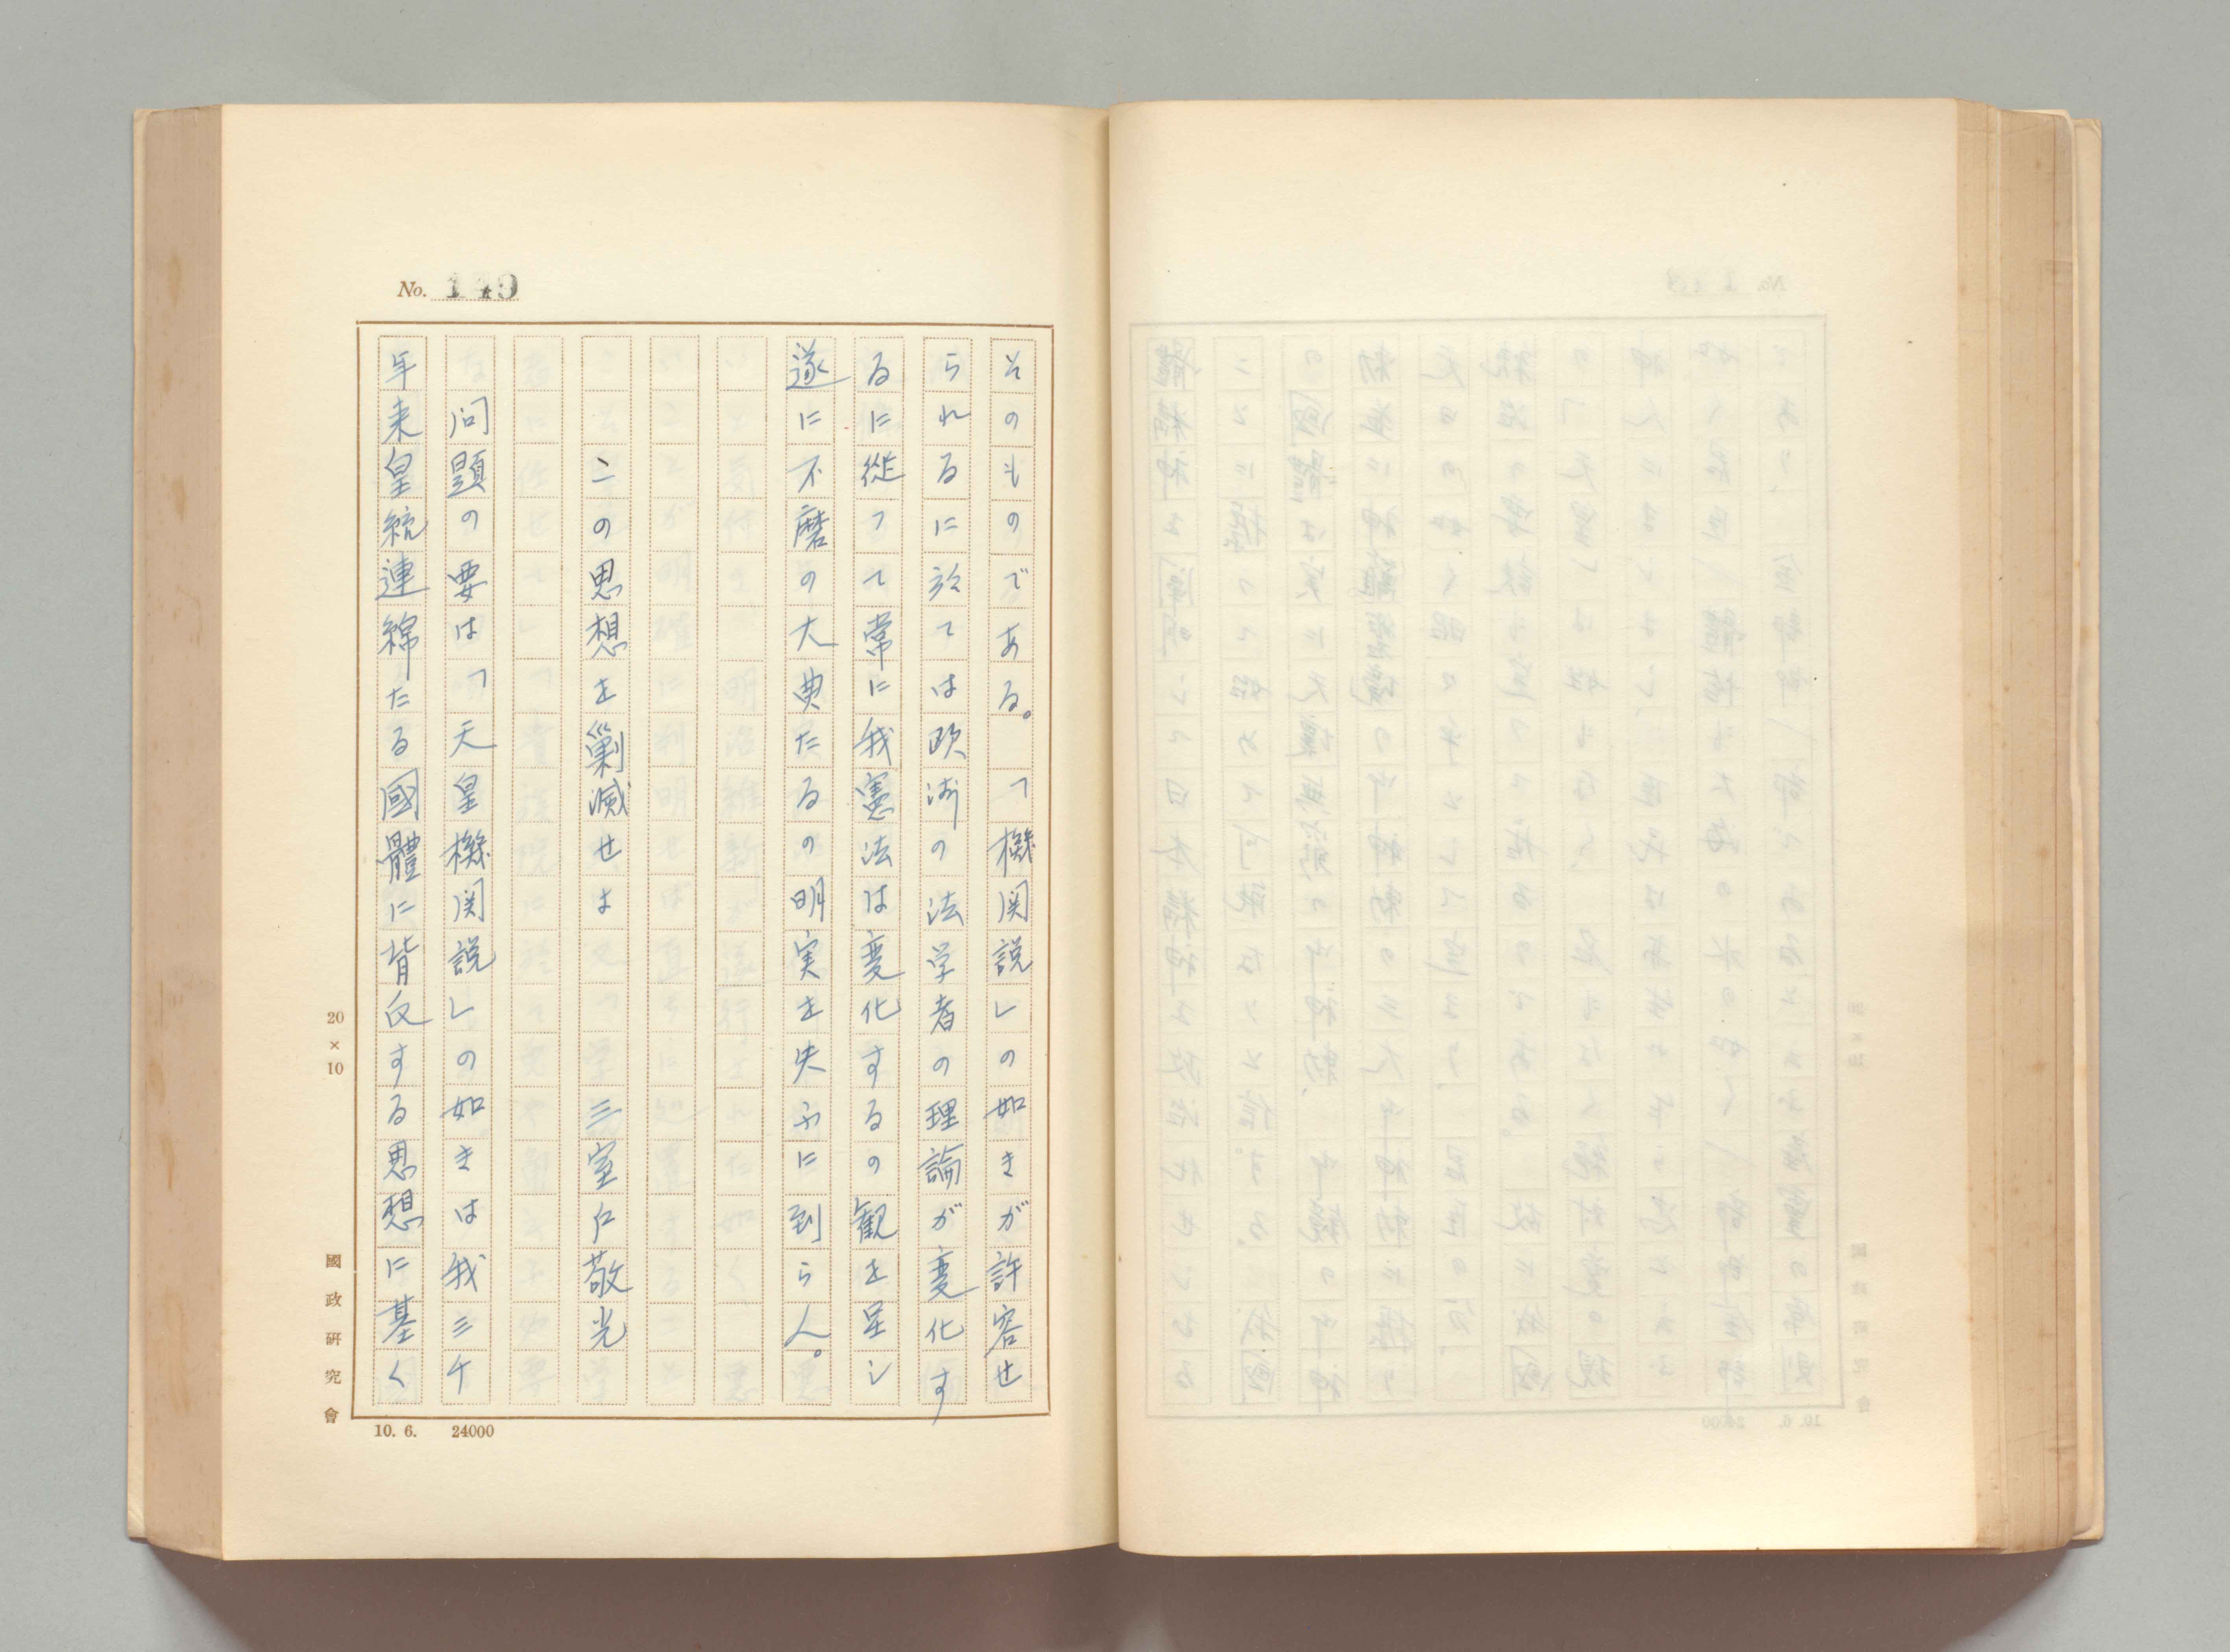 No. 149
そのものである。「機関説」の如きが許容せ
られるに於ては欧洲の法学者の理論が変化す
るに從つて常に我憲法は変化するの観を呈し
遂に不磨の大典たるの明実を失ふに到らん。
この思想を剿滅せよ 三室戸敬光
問題の要は「天皇機関説」の如きは我三千
年来皇統連綿たる國體に背反する思想に基く
20×10
國政研究會
10. 6. 24000